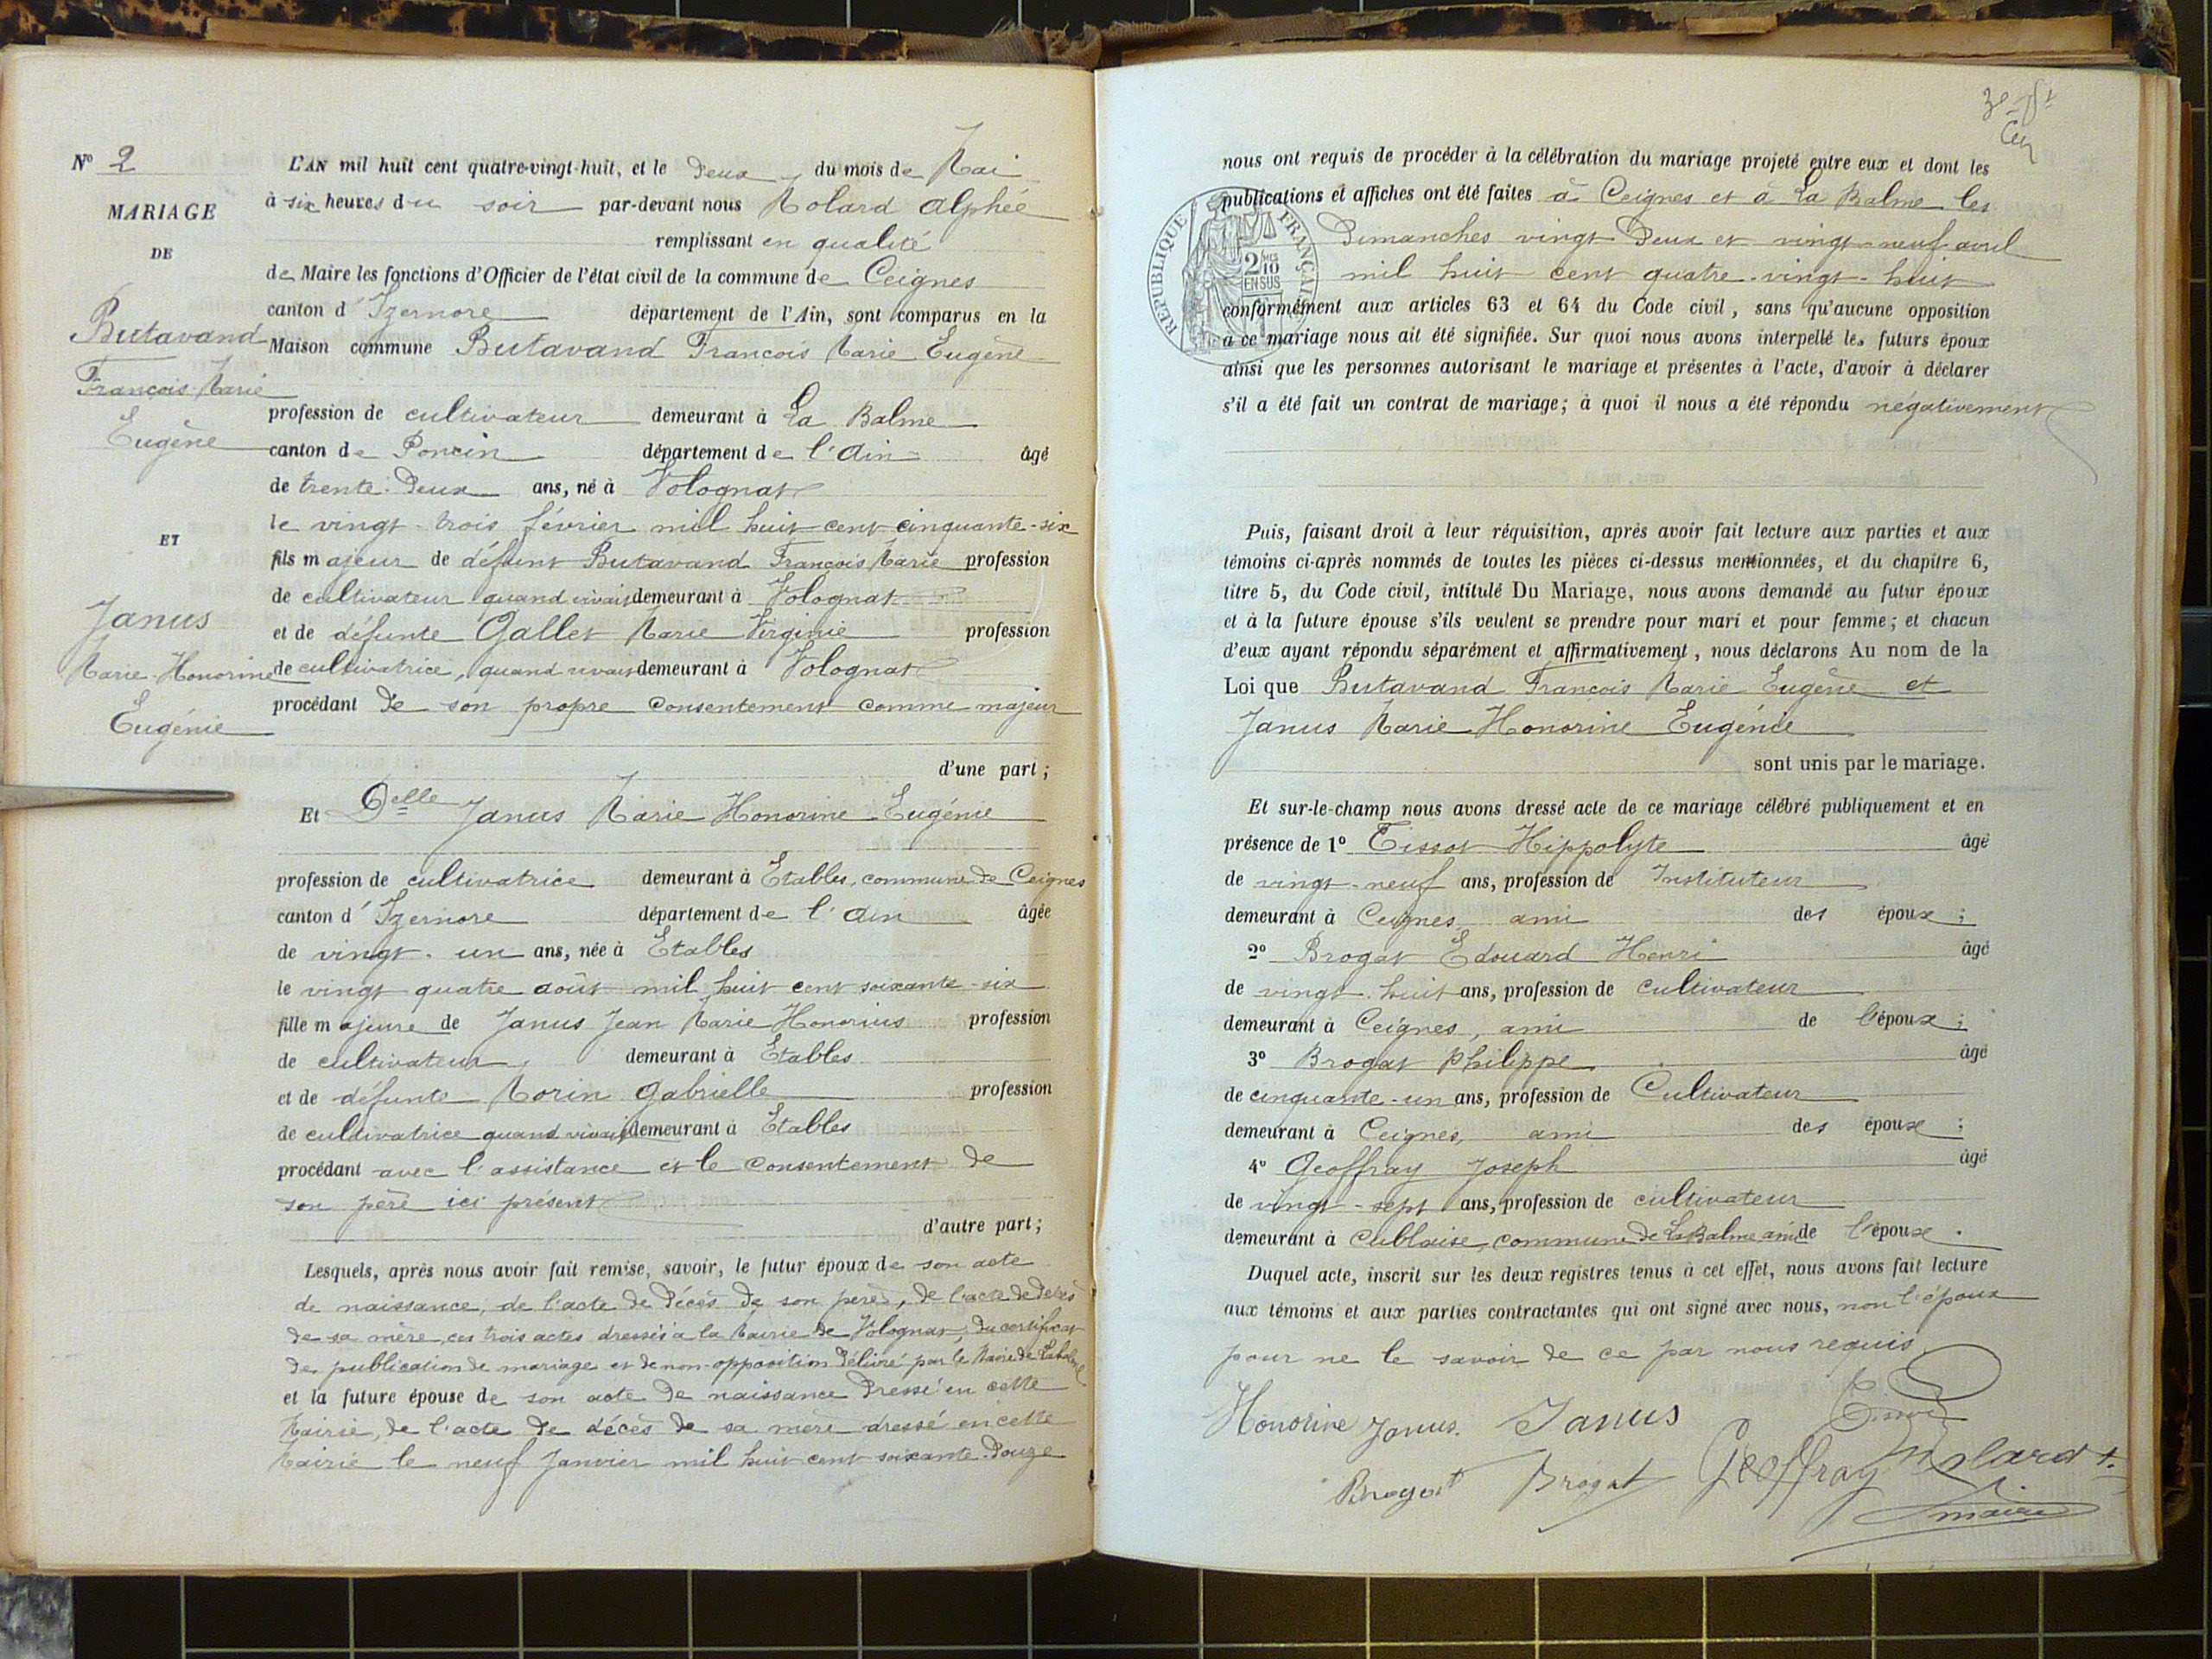 Nº 2
MARIAGE
DE
Butavand
François Marie
Eugène
ET
Janus
Marie Honorine
Eugénie
L'AN mil huit cent quatre-vingt-huit, et le deux du mois de Mai
à six heures du soir par-devant nous Molard Alphée
remplissant en qualité
de Maire les fonctions d'Officier de l'état civil de la commune de Ceignes
canton d'Izernore département de l'Ain, sont comparus en la
Maison commune Butavand François Marie Eugène
profession de cultivateur demeurant à La Balme
canton de Poncin département de l'Ain âgé
de trente deux ans, né à Volognat
le vingt-trois février mil huit cent cinquante-six
fils majeur de défunt Butavand François Marie profession
de cultivateur quand vivait demeurant à Volognat
et de défunte Gallet Marie Virginie profession
de cultivatrice, quand vivait demeurant à Volognat
procédant de son propre consentement comme majeur
d'une part;
Et Delle Janus Marie Honorine Eugénie
profession de cultivatrice demeurant à Etables, commune de Ceignes
canton d'Izernore département de l'Ain âgée
de vingt-un ans, née à Etables
le vingt quatre août mil huit cent soixante-six
fille majeure de Janus Jean Marie Honorius profession
de cultivateur, demeurant à Etables
et de défunte Morin Gabrielle profession
de cultivatrice quand vivait demeurant à Etables
procédant avec l'assistance et le consentement de
son père ici présent
d'autre part;
Lesquels, après nous avoir fait remise, savoir, le futur époux de son acte
de naissance, de l'acte de décès de son père, de l'acte de décès
de sa mère, ces trois actes dressés à la Mairie de Volognat, du certificat
de publication de mariage et de non-opposition délivré par le Maire de Labalme
et la future épouse de son acte de naissance dressé en cette
Mairie, de l'acte de décès de sa mère dressé en cette
Mairie le neuf Janvier mil huit cent soixante-douze
nous ont requis de procéder à la célébration du mariage projeté entre eux et dont les
publications et affiches ont été faites à Ceignes et à La Balme les
Dimanches vingt deux et vingt-neuf avril
mil huit cent quatre-vingt-huit
REPUBLIQUE FRANÇAISE
2/10
EN SUS
conformément aux articles 63 et 64 du Code civil, sans qu'aucune opposition
à ce mariage nous ait été signifiée. Sur quoi nous avons interpellé les futurs époux
ainsi que les personnes autorisant le mariage et présentes à l'acte, d'avoir à déclarer
s'il a été fait un contrat de mariage; à quoi il nous a été répondu négativement
Puis, faisant droit à leur réquisition, après avoir fait lecture aux parties et aux
témoins ci-après nommés de toutes les pièces ci-dessus mentionnées, et du chapitre 6,
titre 5, du Code civil, intitulé Du Mariage, nous avons demandé au futur époux
et à la future épouse s'ils veulent se prendre pour mari et pour femme; et chacun
d'eux ayant répondu séparément et affirmativement, nous déclarons Au nom de la
Loi que Butavand François Marie Eugène et
Janus Marie Honorine Eugénie
sont unis par le mariage.
Et sur-le-champ nous avons dressé acte de ce mariage célébré publiquement et en
présence de 1º Tissot Hippolyte âgé
de vingt-neuf ans, profession de Instituteur
demeurant à Ceignes ami des époux;
2º Brogat Edouard Henri âgé
de vingt-huit ans, profession de cultivateur
demeurant à Ceignes, ami de l'époux;
3º Brogat Philippe âgé
de cinquante-un ans, profession de Cultivateur
demeurant à Ceignes, ami des époux;
4º Geoffray Joseph âgé
de vingt-sept ans, profession de cultivateur
demeurant à Cublaise, commune de La Balme ami de l'époux.
Duquel acte, inscrit sur les deux registres tenus à cet effet, nous avons fait lecture
aux témoins et aux parties contractantes qui ont signé avec nous, non l'époux
pour ne le savoir de ce par nous requis
Honorine Janus. Janus Tissot
Brogat Brogat Geoffray Molard
maire